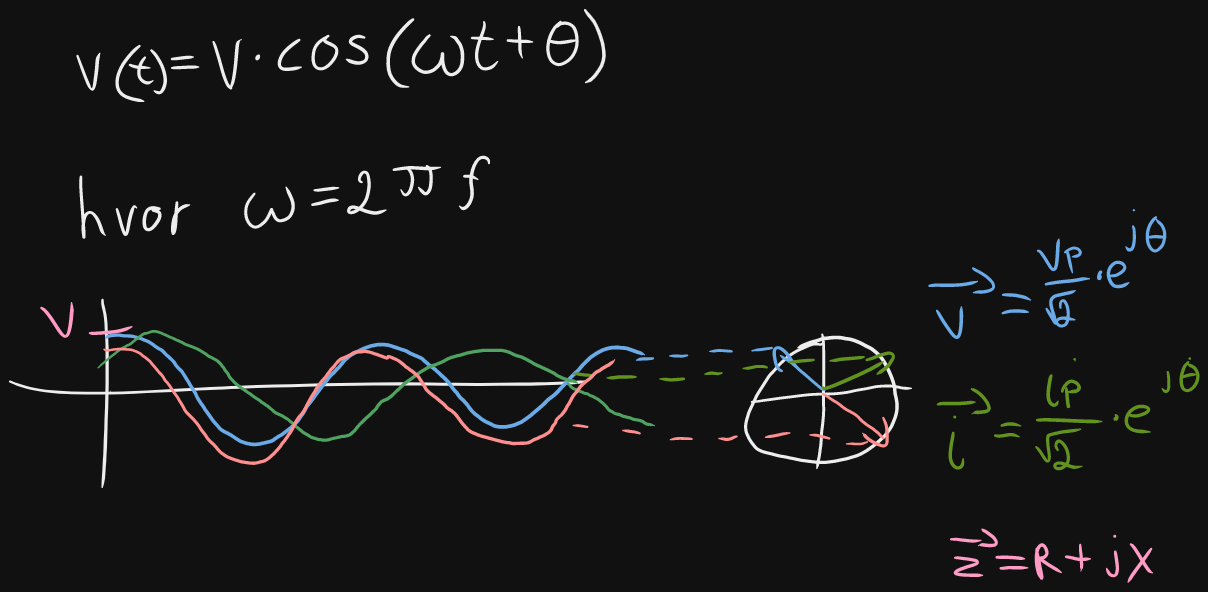 v(t)=V·cos(ωt+θ)
hvor ω=2πf
V
V⃗ = Vp/√2 · e^jθ
i⃗ = ip/√2 · e^jθ
z⃗ = R + jX